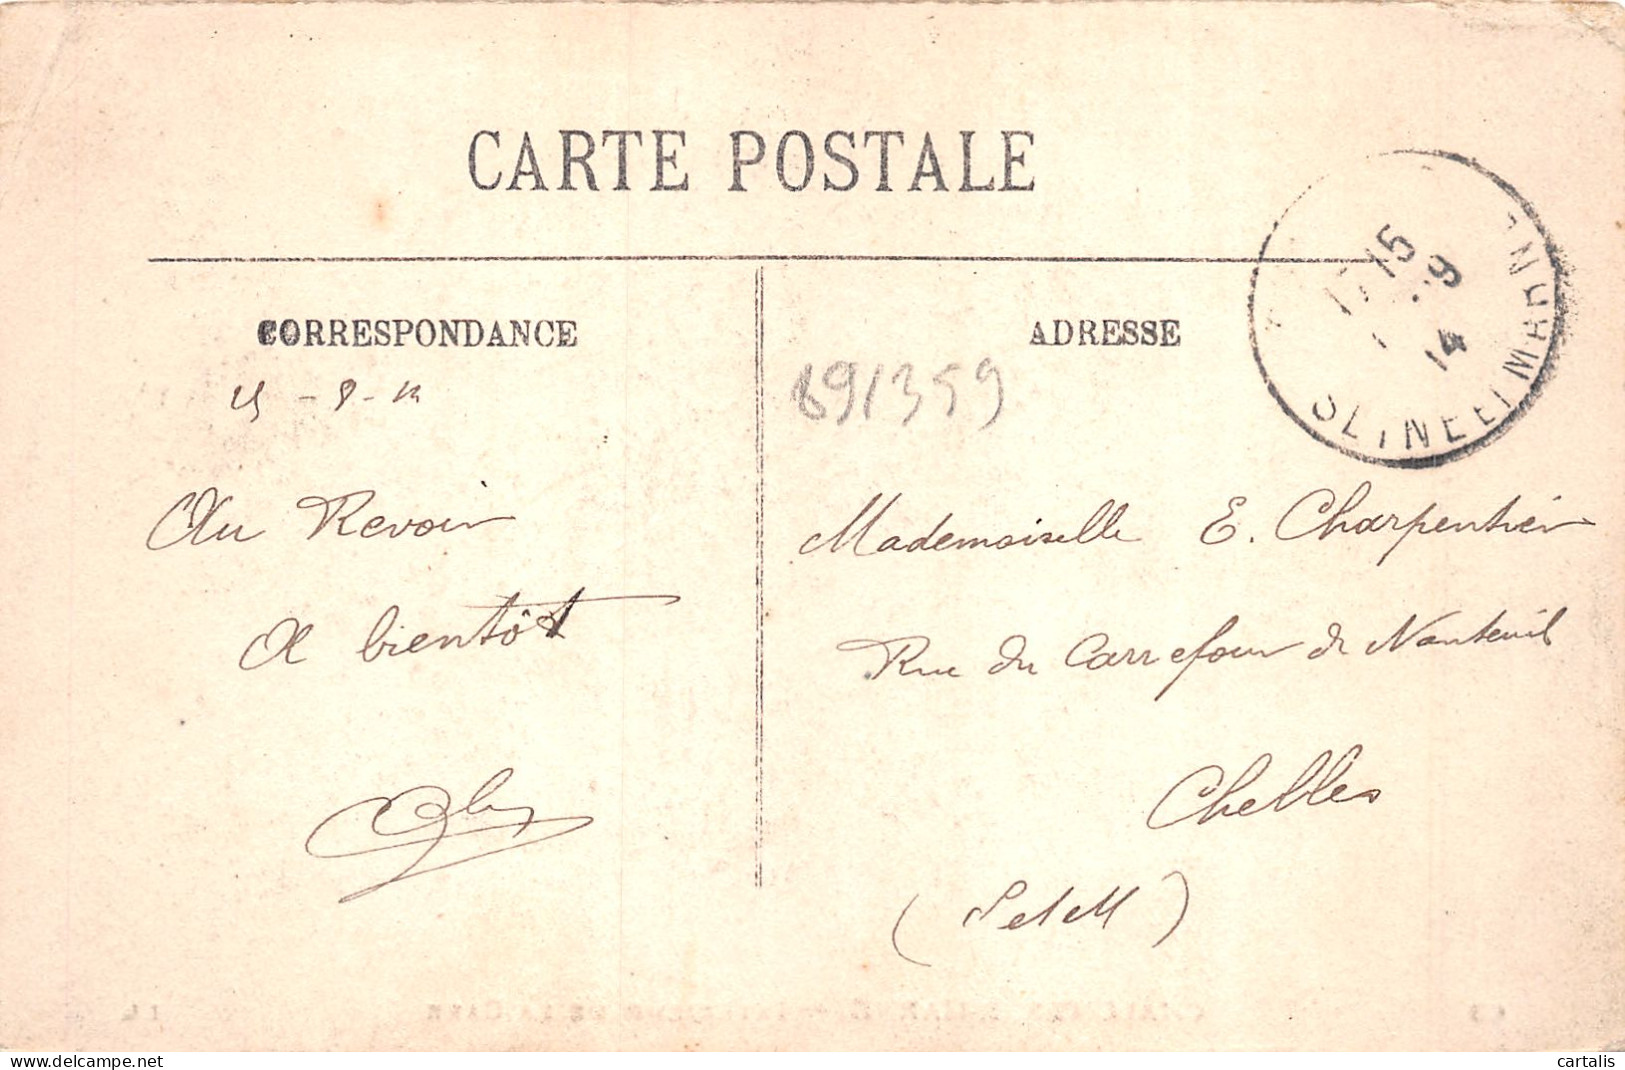 CARTE POSTALE
CORRESPONDANCE
Au Revoir
A bientôt
ADRESSE
15
9
14
SEINE ET MARNE
Mademoiselle E. Charpentier
Rue du Carrefour de Nanteuil
Chelles
(S et M)
delcampe.net
cartalis